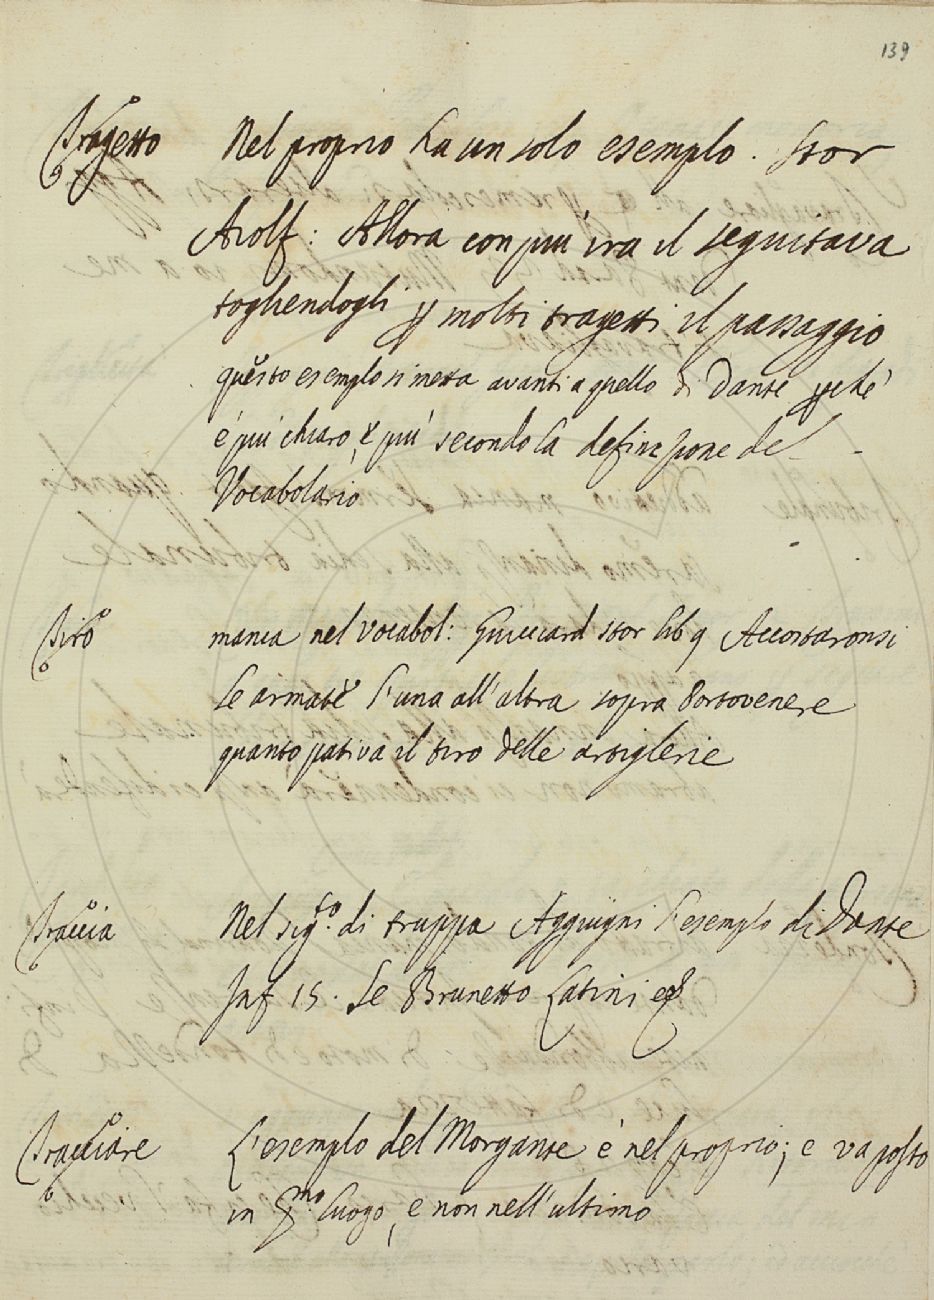 139
Tragetto Nel proprio ha un solo esempio. Stor
Aiolf: Allora con piu ira il seguitava
togliendogli p molti tragetti il passaggio
questo esempio si metta avanti a quello di Dante pchè
è piu chiaro, e piu secondo la definizione del
Vocabolario
Tiro manca nel Vocabol: Guicciard stor lib 9 Accostaronsi
le armate l'una all'altra sopra Portovenere
quanto pativa il tiro delle artiglerie
Traccia Nel sig.to di truppa Aggiugni l'esempio di Dante
Inf 15. Se Brunetto Latini
Tracciare L'esempio del Morgante è nel proprio; e va posto
in Pmo luogo, e non nell'ultimo